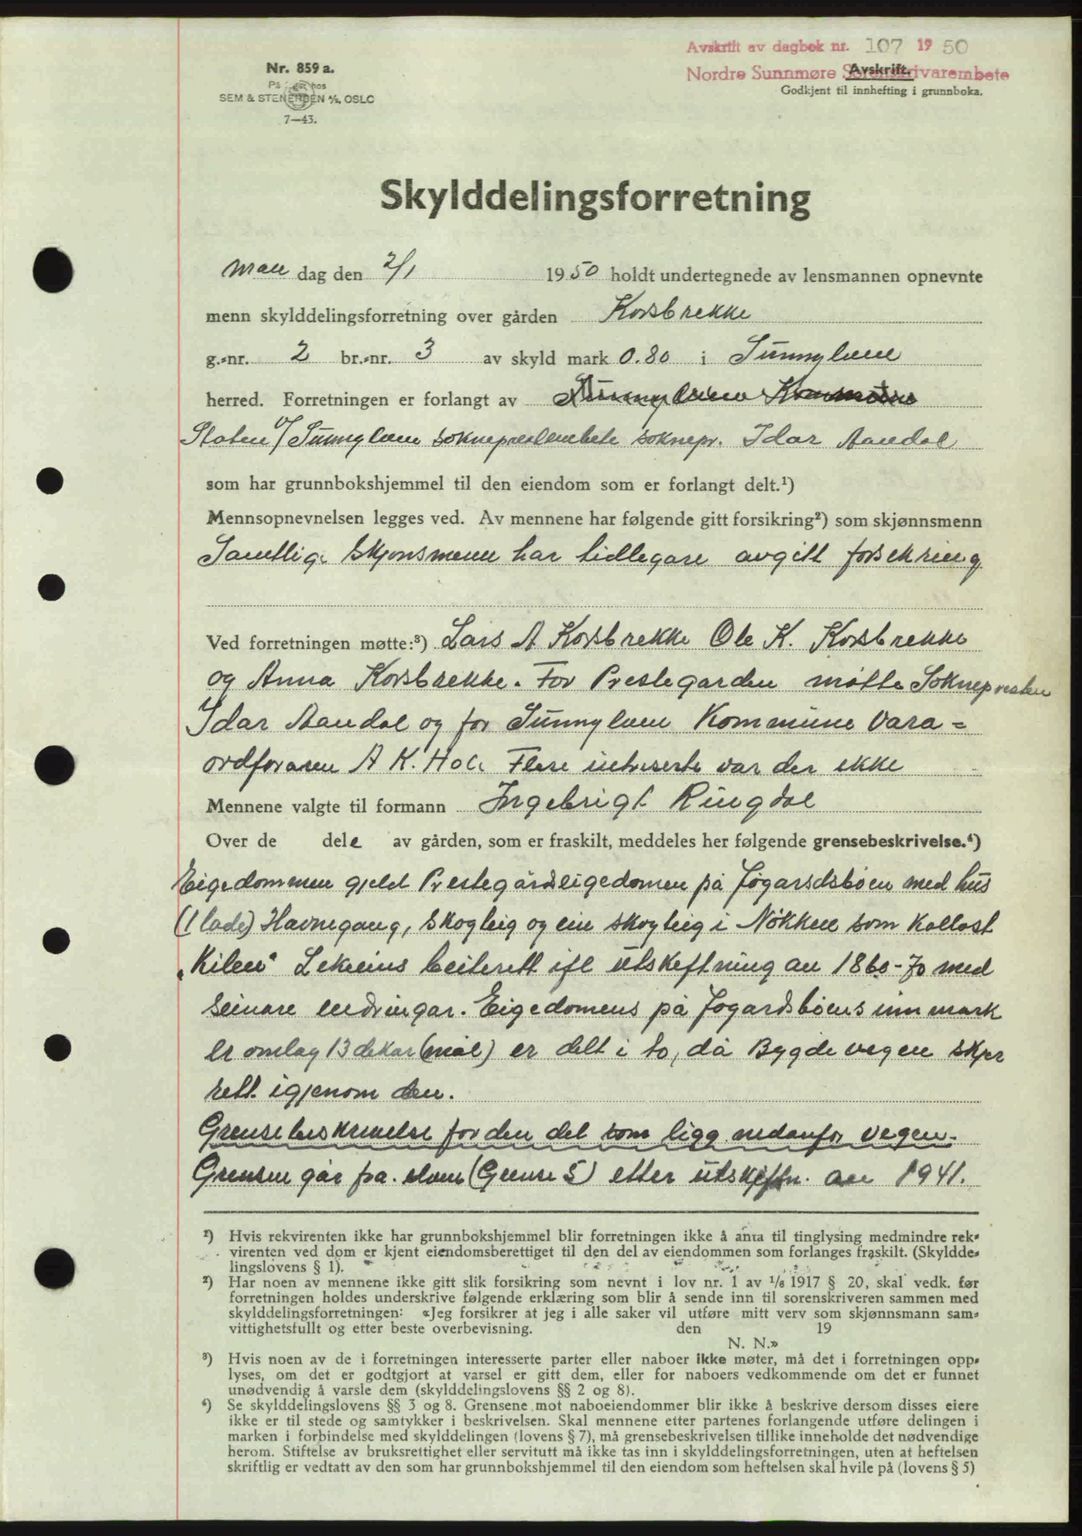 Avskrift av dagbok nr. 107 1950
Nordre Sunnmøre Sorenskrivarembete
Avskrift.
Godkjent til innhefting i grunnboka.
Nr. 859 a.
SEM & STENERSEN A/S, OSLO
7—43.
Skylddelingsforretning
Man dag den 2/1 1950 holdt undertegnede av lensmannen opnevnte
menn skylddelingsforretning over gården Korsbrekke
g.-nr. 2 br.-nr. 3 av skyld mark 0.80 i Sunnylven
herred. Forretningen er forlangt av Sunnylven Kommune
Staten v/ Sunnylven sokneprestembete soknepr. Idar Aandal
som har grunnbokshjemmel til den eiendom som er forlangt delt.¹)
Mennsopnevnelsen legges ved. Av mennene har følgende gitt forsikring²) som skjønnsmenn
Samtlige skjønsmenn har tidlegare avgitt forsekring
Ved forretningen møtte:³) Lars A Korsbrekke Ole K. Korsbrekke
og Anna Korsbrekke. For Prestegarden møtte Soknepresten
Idar Aandal og for Sunnylven Kommune Vara=
ordføraren A K. Hole Flere interserte var der ikke
Mennene valgte til formann Ingebrigt Ringdal
Over de dele av gården, som er fraskilt, meddeles her følgende grensebeskrivelse.⁴)
Eigedommen gjeld Prestegårdseigedomen på Jøgardsbøen med hus
(1 lade) Havnegang, skogteig og ein skogteig i Nøkken som kallast
"Kilen" Lekneins beiterett ifl utskeftning av 1860-70 med
seinare endringar. Eigedomens på Jøgardsbøens innmark
er omlag 13 dekar (mål) er delt i to, då Bygdevegen skjer
rett igjenom den.
Grensebeskrivelse for den del som ligg nedanfor vegen.
Grensen går fra elven (Grense 5) etter utskiftn. av 1941.
¹) Hvis rekvirenten ikke har grunnbokshjemmel blir forretningen ikke å anta til tinglysing medmindre rek-
virenten ved dom er kjent eiendomsberettiget til den del av eiendommen som forlanges fraskilt. (Skyldde-
lingslovens § 1).
²) Har noen av mennene ikke gitt slik forsikring som nevnt i lov nr. 1 av 1/6 1917 § 20, skal vedk. før
forretningen holdes underskrive følgende erklæring som blir å sende inn til sorenskriveren sammen med
skylddelingsforretningen: «Jeg forsikrer at jeg i alle saker vil utføre mitt verv som skjønnsmann sam-
vittighetsfullt og etter beste overbevisning. den 19
N. N.»
³) Hvis noen av de i forretningen interesserte parter eller naboer ikke møter, må det i forretningen opp-
lyses, om det er godtgjort at varsel er gitt dem, eller for naboers vedkommende om det er funnet
unødvendig å varsle dem (skylddelingslovens §§ 2 og 8).
⁴) Se skylddelingslovens §§ 3 og 8. Grensene mot naboeiendommer blir ikke å beskrive dersom disses eiere
ikke er til stede og samtykker i beskrivelsen. Skal mennene etter partenes forlangende utføre delingen i
marken i forbindelse med skylddelingen (lovens § 7), må grensebeskrivelsen tillike inneholde det nødvendige
herom. Stiftelse av bruksrettighet eller servitutt må ikke tas inn i skylddelingsforretningen, uten at heftelsen
skriftlig er vedtatt av den som har grunnbokshjemmel til den eiendom som heftelsen skal hvile på (lovens § 5)